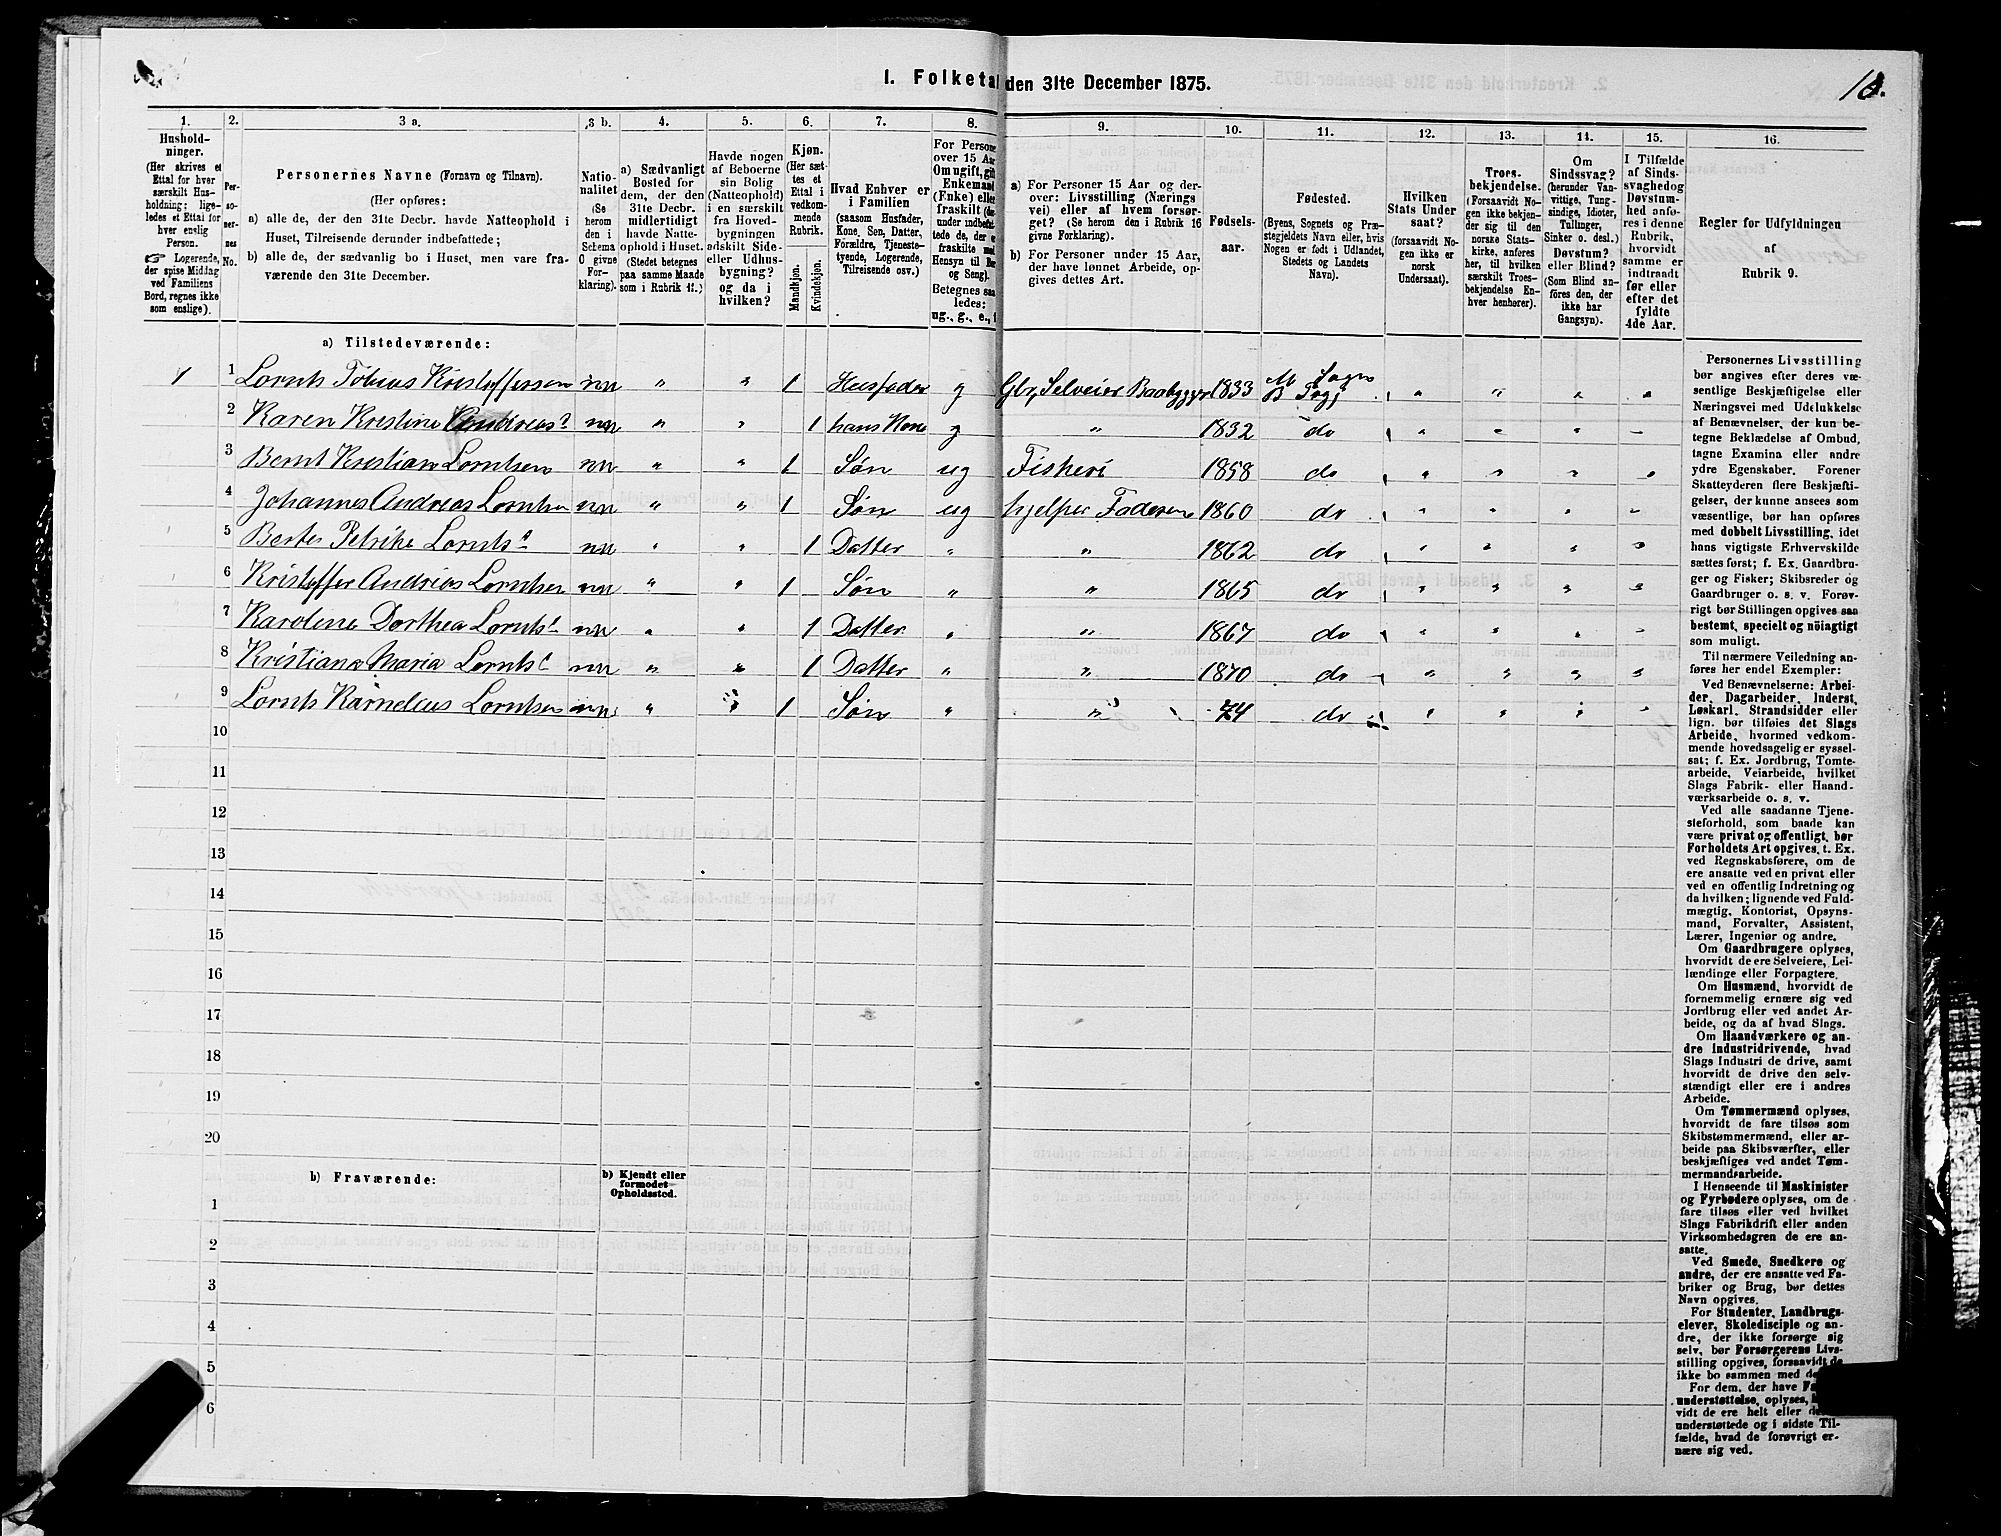 I. Folketal den 31te December 1875.
10.
1. 2. 3 a. 3 b. 4. 5. 6. 7. 8. 9. 10. 11. 12. 13. 14. 15. 16.
Hushold-
ninger.
(Her skrives et
Ettal for hver
særskilt Hus-
holdning; lige-
ledes et Ettal for
hver enslig
Person.
☞ Logerende,
der spise Middag
ved Familiens
Bord, regnes ikke
som enslige).
Per-
so-
ner-
nes
No.
Personernes Navne (Fornavn og Tilnavn).
(Her opføres:
a) alle de, der den 31te Decbr. havde Natteophold i
Huset, Tilreisende derunder indbefattede;
b) alle de, der sædvanlig bo i Huset, men vare fra-
værende den 31te December.
Natio-
nalitet
(Se
herom
den i
Schema
O givne
For-
klaring).
a) Sædvanligt
Bosted for
dem, der den
31te Decbr.
midlertidigt
havde Natte-
ophold i Huset.
(Stedet betegnes
paa samme Maade
som i Rubrik 11.)
Havde nogen
af Beboerne
sin Bolig
(Natteophold)
i en særskilt
fra Hoved-
bygningen
adskilt Side-
eller Udhus-
bygning?
og da i
hvilken?
Kjøn.
(Her sæt-
tes et
Ettal i
vedkom-
mende
Rubrik.
Mandkjøn.
Kvindekjøn.
Hvad Enhver er
i Familien
(saasom Husfader,
Kone, Søn, Datter,
Forældre, Tjeneste-
tyende, Logerende,
Tilreisende osv.)
For Persone
over 15 Aar
Om ugift, gift
Enkemand
(Enke) eller
fraskilt
under indbefat-
tede de, der e
fraskilte med
Hensyn til Bor
og Seng).
Betegnes saa
ledes:
ug., g., e., f
a) For Personer 15 Aar og der-
over: Livsstilling (Nærings
vei) eller af hvem forsør-
get? (Se herom den i Rubrik 16
givne Forklaring).
b) For Personer under 15 Aar,
der have lønnet Arbeide, op-
gives dettes Art.
Fødsels-
aar.
Fødested.
(Byens, Sognets og Præ-
stegjeldets Navn eller, hvis
Nogen er født i Udlandet,
Stedets og Landets
Navn).
Hvilken
Stats Under
saat?
(forsaavidt No-
gen ikke er
norsk
Undersaat).
Troes-
bekjendelse.
(Forsaavidt No-
gen ikke bekjen-
der sig til den
norske Stats-
kirke, anføres
her, til hvilken
særskilt Troes-
bekjendelse En-
hver henhører).
Om
Sindssvag?
(herunder Van-
vittige, Tung-
sindige, Idioter,
Tullinger,
Sinker o. desl.)
Døvstum?
eller Blind?
(Som Blind an-
føres den, der
ikke har
Gangsyn).
I Tilfælde
af Sinds-
svaghedog
Døvstum-
hed anfø-
res i denne
Rubrik,
hvorvidt
samme er
indtraadt
før eller
efter det
fyldte
4de Aar.
Regler for Udfyldningen
af
Rubrik 9.
a) Tilstedeværende:
1 1 Lornts Tobias Kristoffersen nn " " 1 Husfader g Gbr, Selveier 1833
2 Karen Kristine Andreasd nn " " 1 hans Kone g " 1832 do
3 Bernt Kristian Lorntsen nn " " 1 Søn ug Fiskeri 1858 do
4 Johannes Andreas Lorntsen nn " " 1 Søn ug hjelper Faderen 1860 do
5 Petrike Lorntsd nn " " 1 Datter " " 1862 do
6 Kristoffer Andreas Lorntsen nn " " 1 Søn " " 1865 do
7 Karoline Dorthea Lorntsd nn " " 1 Datter " " 1867 do
8 Kristiana Maria Lorntsd nn " " 1 Datter " " 1870 do
9 Lornts Kornelius Lorntsen nn " " 1 Søn " " 74 do
10
11
12
13
14
15
16
17
18
19
20
b) Fraværende:
b) Kjendt eller
formodet
Opholdssted.
1
2
3
4
5
6
Personernes Livsstilling
bør angives efter deres væ-
sentlige Beskjæftigelse eller
Næringsvei med Udelukkelse
af Benævnelser, der kun be-
tegne Beklædelse af Ombud,
tagne Examina eller andre
ydre Egenskaber. Forener
Skatteyderen flere Beskjæfti-
gelser, der kunne ansees som
væsentlige, bør han opføres
med dobbelt Livsstilling, idet
hans vigtigste Erhvervskilde
sættes først; f. Ex. Gaardbru-
ger og Fisker; Skibsreder og
Gaardbruger o. s. v. Forøv-
rigt bør Stillingen opgives saa
bestemt, specielt og nöiagtigt
som muligt.
Til nærmere Veiledning an-
føres her endel Exempler:
Ved Benævnelserne: Arbei-
der, Dagarbeider, Inderst,
Løskarl, Strandsidder eller
lign. bør tilføies det Slags
Arbeide, hvormed vedkom-
mende hovedsagelig er syssel-
sat; f. Ex. Jordbrug, Tomte-
arbeide, Veiarbeide, hvilket
Slags Fabrik- eller Haand-
værksarbeide o. s. v.
Ved alle saadanne Tjene-
steforhold, som baade kan
være privat og offentligt, bør
Forholdets Art opgives, t. Ex.
ved Regnskabsførere, om de
ere ansatte ved en privat eller
ved en offentlig Indretning og
da hvilken; lignende ved Fuld-
mægtig, Kontorist, Opsyns-
mand, Forvalter, Assistent,
Lærer, Ingeniør og andre.
Om Gaardbrugere oplyses,
hvorvidt de ere Selveiere, Lei-
lændinge eller Forpagtere.
Om Husmænd, hvorvidt de
fornemmelig ernære sig ved
Jordbrug eller ved andet Ar-
beide, og da af hvad Slags.
Om Haandværkere og an-
dre industridrivende, hvad
Slags Industri de drive, samt
hvorvidt de drive den selv-
stændigt eller ere i andres
Arbeide.
Om Tømmermænd oplyses,
hvorvidt de fare tilsøs som
Skibstømmermænd, eller ar-
beide paa Skibsværfter, eller
beskjæftiges ved andet Tøm-
mermandsarbeide.
I Henseende til Maskinister
og Fyrbødere oplyses, om de
fare tilsøs eller ved hvilket
Slags Fabrikdrift eller anden
Virksomhedsgren de ere an-
satte.
Ved Smede, Snedkere og
andre, der ere ansatte ved Fa-
briker og Brug, bør dettes
Navn opgives.
For Studenter, Landbrugs-
elever, Skoledisciple og an-
dre, der ikke forsørge sig
selv, bør Forsørgerens Livs-
stilling opgives, forsaavidt de
ikke bo sammen med
For dem, der have
understøttelse, oplyses,
vidt de ere helt eller
understøttede og i sidste Til-
fælde, hvad de forøvrigt er-
nære sig ved.